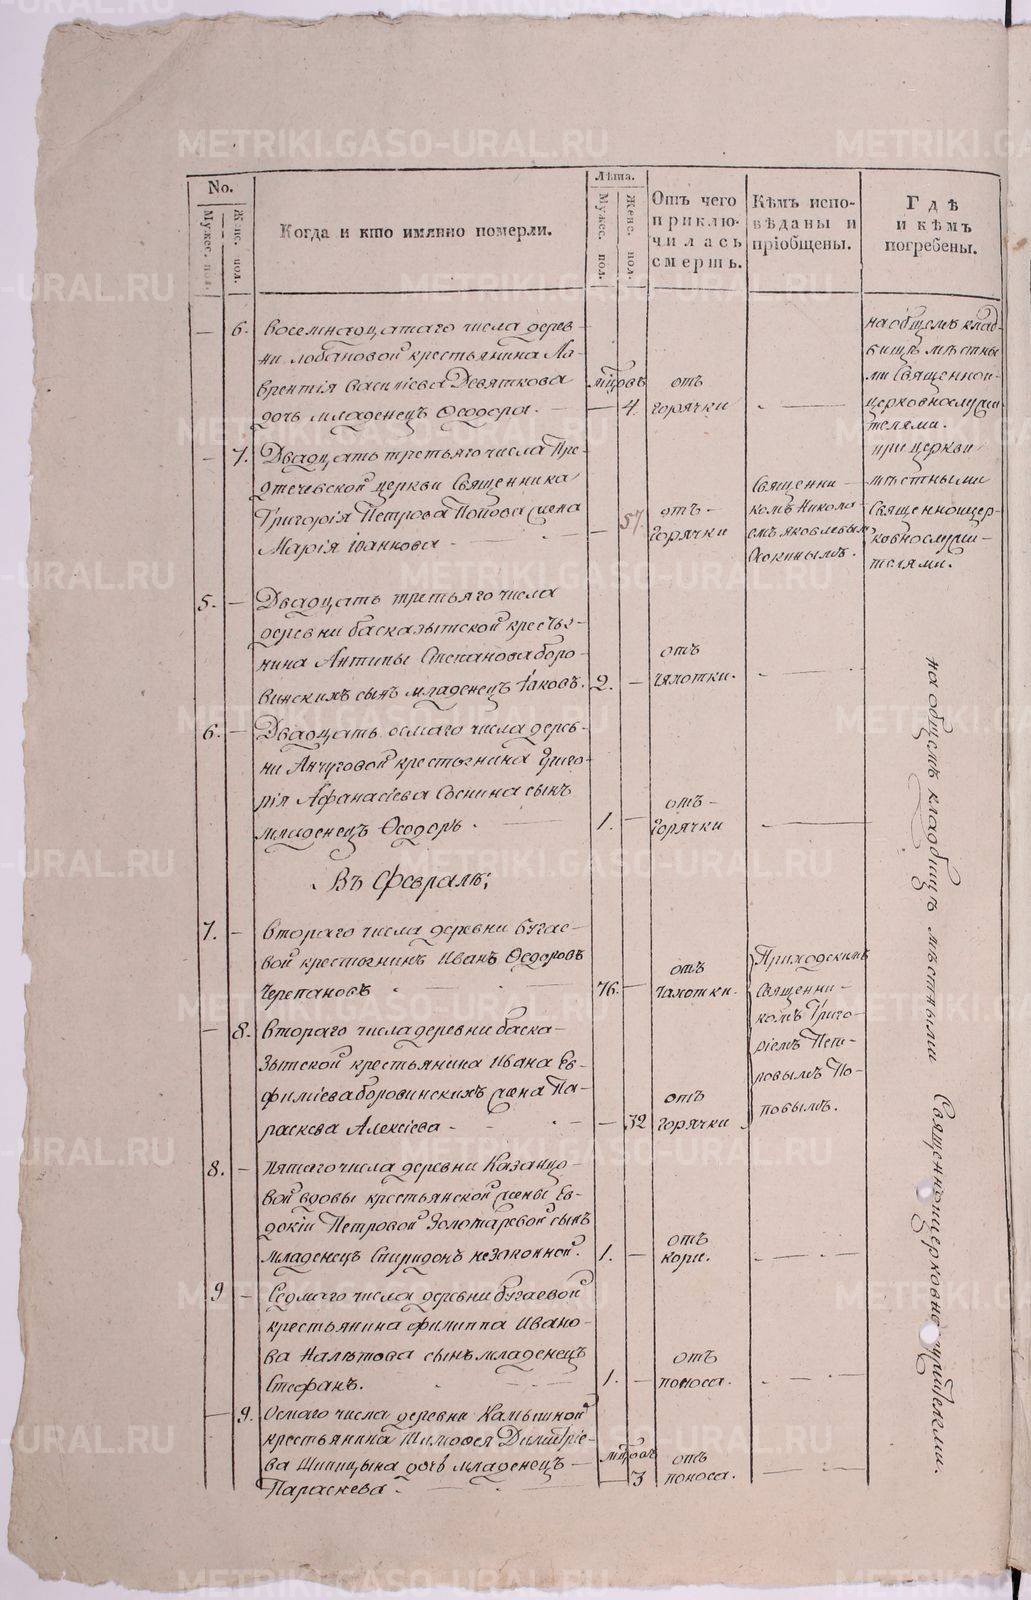 METRIKI.GASO-URAL.RU
No.
Мужес. пол.
Женс. пол.
Когда и кто имянно померли.
Лѣта.
Мужес. пол.
Женс. пол.
Отъ чего
приклю-
чилась
смерть.
Кѣмъ испо-
вѣданы и
пріобщены.
Гдѣ
и кѣмъ
погребены.
— 6. Восемнадцатаго числа дерев-
ни Лобановой крестьянина Ла-
врентія Василіева Девяткова
дочь младенецъ Ѳеодора. —
мцовъ
— 4.
отъ
горячки
на общемъ клад-
бищѣ мѣстны-
ми Священно-
церковнослужи-
телями.
— 7. Двадцать третьяго числа Пре-
дтечевской церкви Священника
Григорія Петрова Попова жена
Марія Іоанкова —
— 57.
отъ
горячки
Священни-
комъ Никола-
емъ Яковлевымъ
при церкви
мѣстными
Священноцер-
ковнослужи-
телями.
5. — Двадцать третьяго числа
деревни Басказытской крестья-
нина Антипы Степанова Боро-
винскихъ сынъ младенецъ Іаковъ.
2. —
отъ
чахотки.
6. — Двадцать осмаго числа дерев-
ни Анчуговой крестьянина Григо-
рія Афанасіева Соснина сынъ
младенецъ Ѳеодоръ.
1. —
отъ
горячки
на общемъ кладбищѣ мѣстными Священноцерковнослужителями.
Въ Февралѣ;
7. — Втораго числа деревни Бугае-
вой крестьянинъ Иванъ Ѳеодоровъ
Черепановъ
76. —
отъ
чахотки.
Приходскимъ
Священни-
комъ Григо-
ріемъ Пет-
ровымъ По-
повымъ.
— 8. Втораго числа деревни Баска-
зытской крестьянина Ивана Ев-
фиміева Боровинскихъ жена Па-
раскева Алексіева —
— 32
отъ
горячки
8. — Пятаго числа деревни Казанцо-
вой вдовы крестьянской жены Ев-
докіи Петровой Золотаревой сынъ
младенецъ Спиридонъ незаконной.
1. —
отъ
кори.
9 — Седмаго числа деревни Бугаевой
крестьянина Филиппа Ивано-
ва Налѣтова сынъ младенецъ
Стефанъ.
1. —
отъ
поноса.
— 9. Осмаго числа деревни Камышной
крестьянина Тимофея Димитріе-
ва Шипицына дочь младенецъ —
Параскева.
мцовъ
— 3
отъ
поноса.